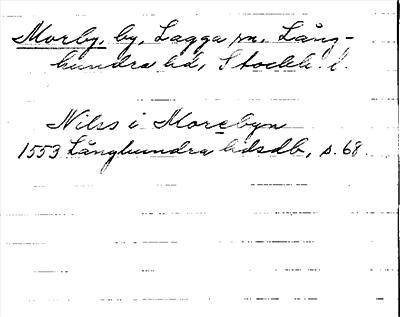 Morby, by, Lagga sn, Lång-
hundra hd, Stockh. l.
Nilss i Morebyn
1553 Långhundra hdsdb, s. 68